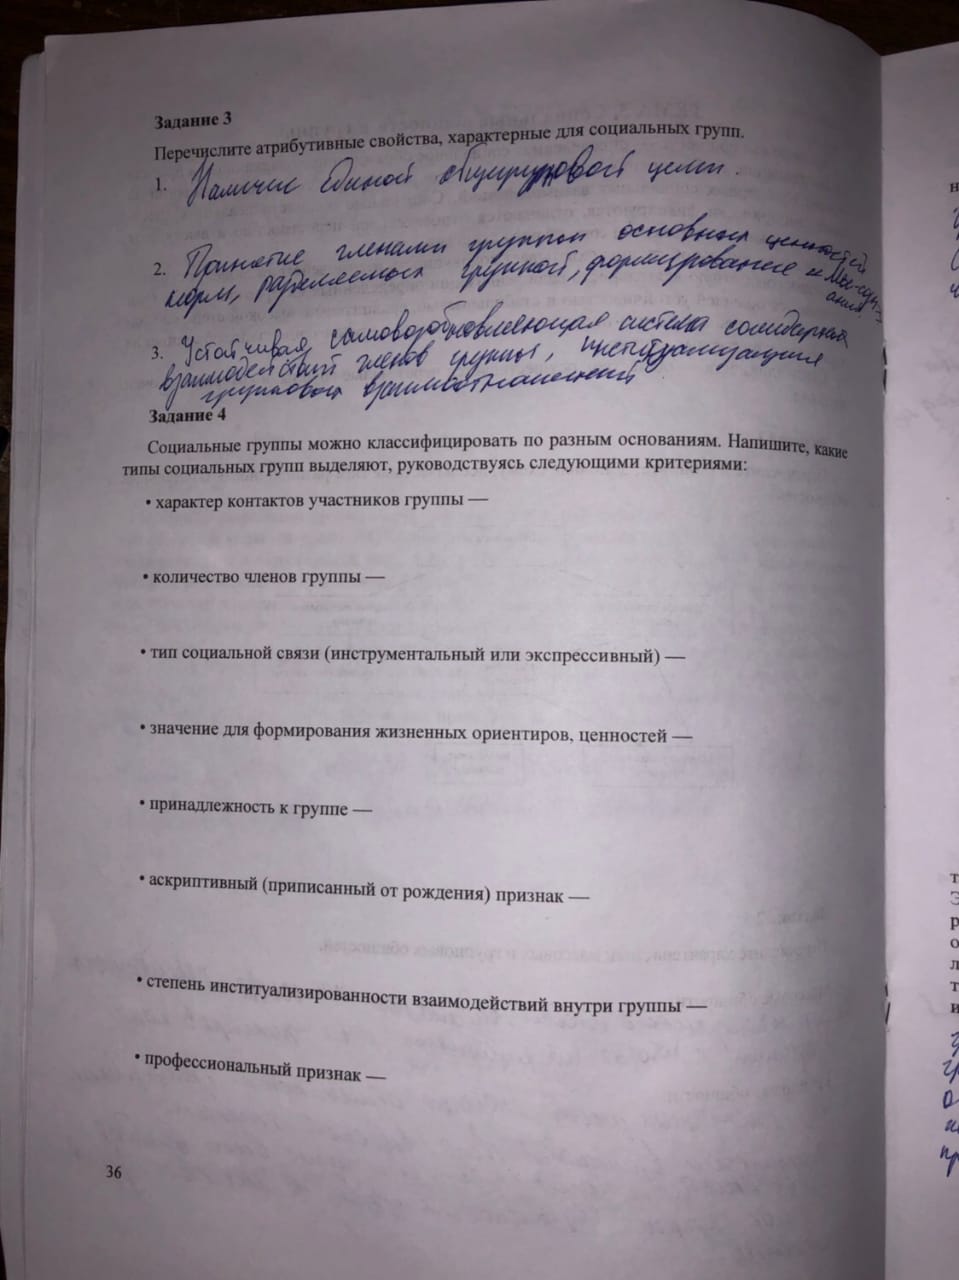 Задание 3
Перечислите атрибутивные свойства, характерные для социальных групп.
1. Наличие единой общегрупповой цели.
2. Принятие членами группы основных ценностей
норм, разделяемых группой, формирование и Мы-созн-
ания
3. Устойчивая самовозобновляющая система солидарных
взаимодействий членов группы, институализация
групповых взаимоотношений
Задание 4
Социальные группы можно классифицировать по разным основаниям. Напишите, какие
типы социальных групп выделяют, руководствуясь следующими критериями:
• характер контактов участников группы —
• количество членов группы —
• тип социальной связи (инструментальный или экспрессивный) —
• значение для формирования жизненных ориентиров, ценностей —
• принадлежность к группе —
• аскриптивный (приписанный от рождения) признак —
• степень институализированности взаимодействий внутри группы —
• профессиональный признак —
36